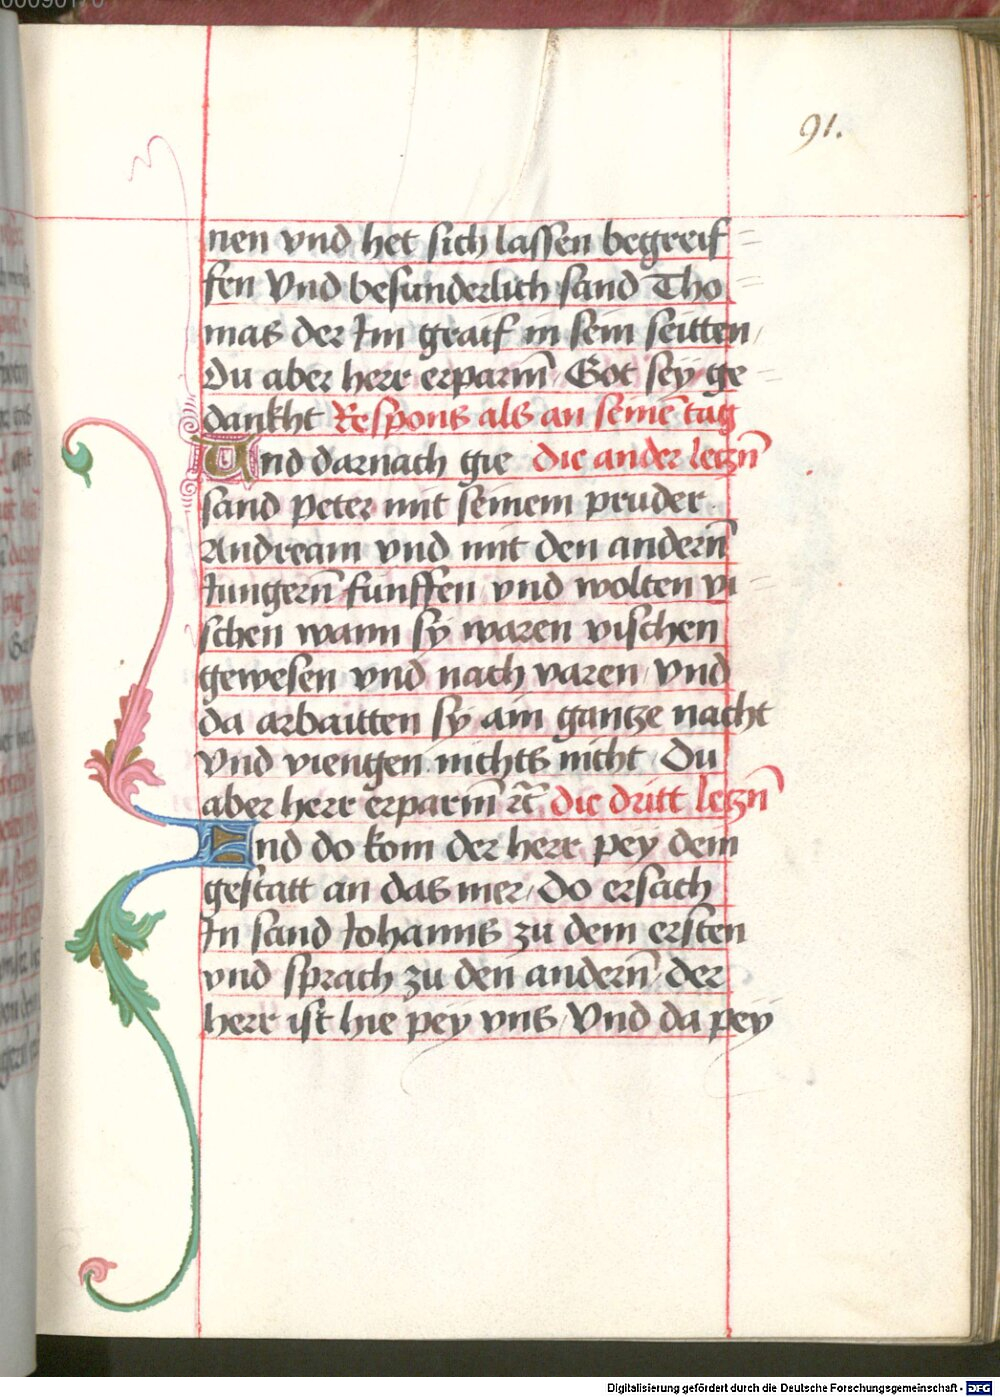 00090170
91.
nen vnd het sich lassen begreif
fen Vnd besunderlich sand Tho
mas der Im graif in sein seitten
Du aber herr erparm̄ Got seӱ ge
dankht Respons als an seinē tag
Vnd darnach gie die ander letzn̄
sand peter mit seinem pruder
Andream vnd mit den andern̄
Jungern̄ funffen vnd wolten vi
schen wann sӱ waren vischen
gewesen vnd nach varen vnd
da arbaitten sӱ ain gantze nacht
Vnd viengen nichts nicht Du
aber herr erparm̄ ꝛc̄ die dritt letzn̄
Vnd do kom der herr peӱ dem
gestatt an das mer Do ersach
In sand Johanns zu dem ersten
vnd sprach zu den andern̄ der
herr ist hie peӱ vns Vnd da peӱ
Digitalisierung gefördert durch die Deutsche Forschungsgemeinschaft - DFG